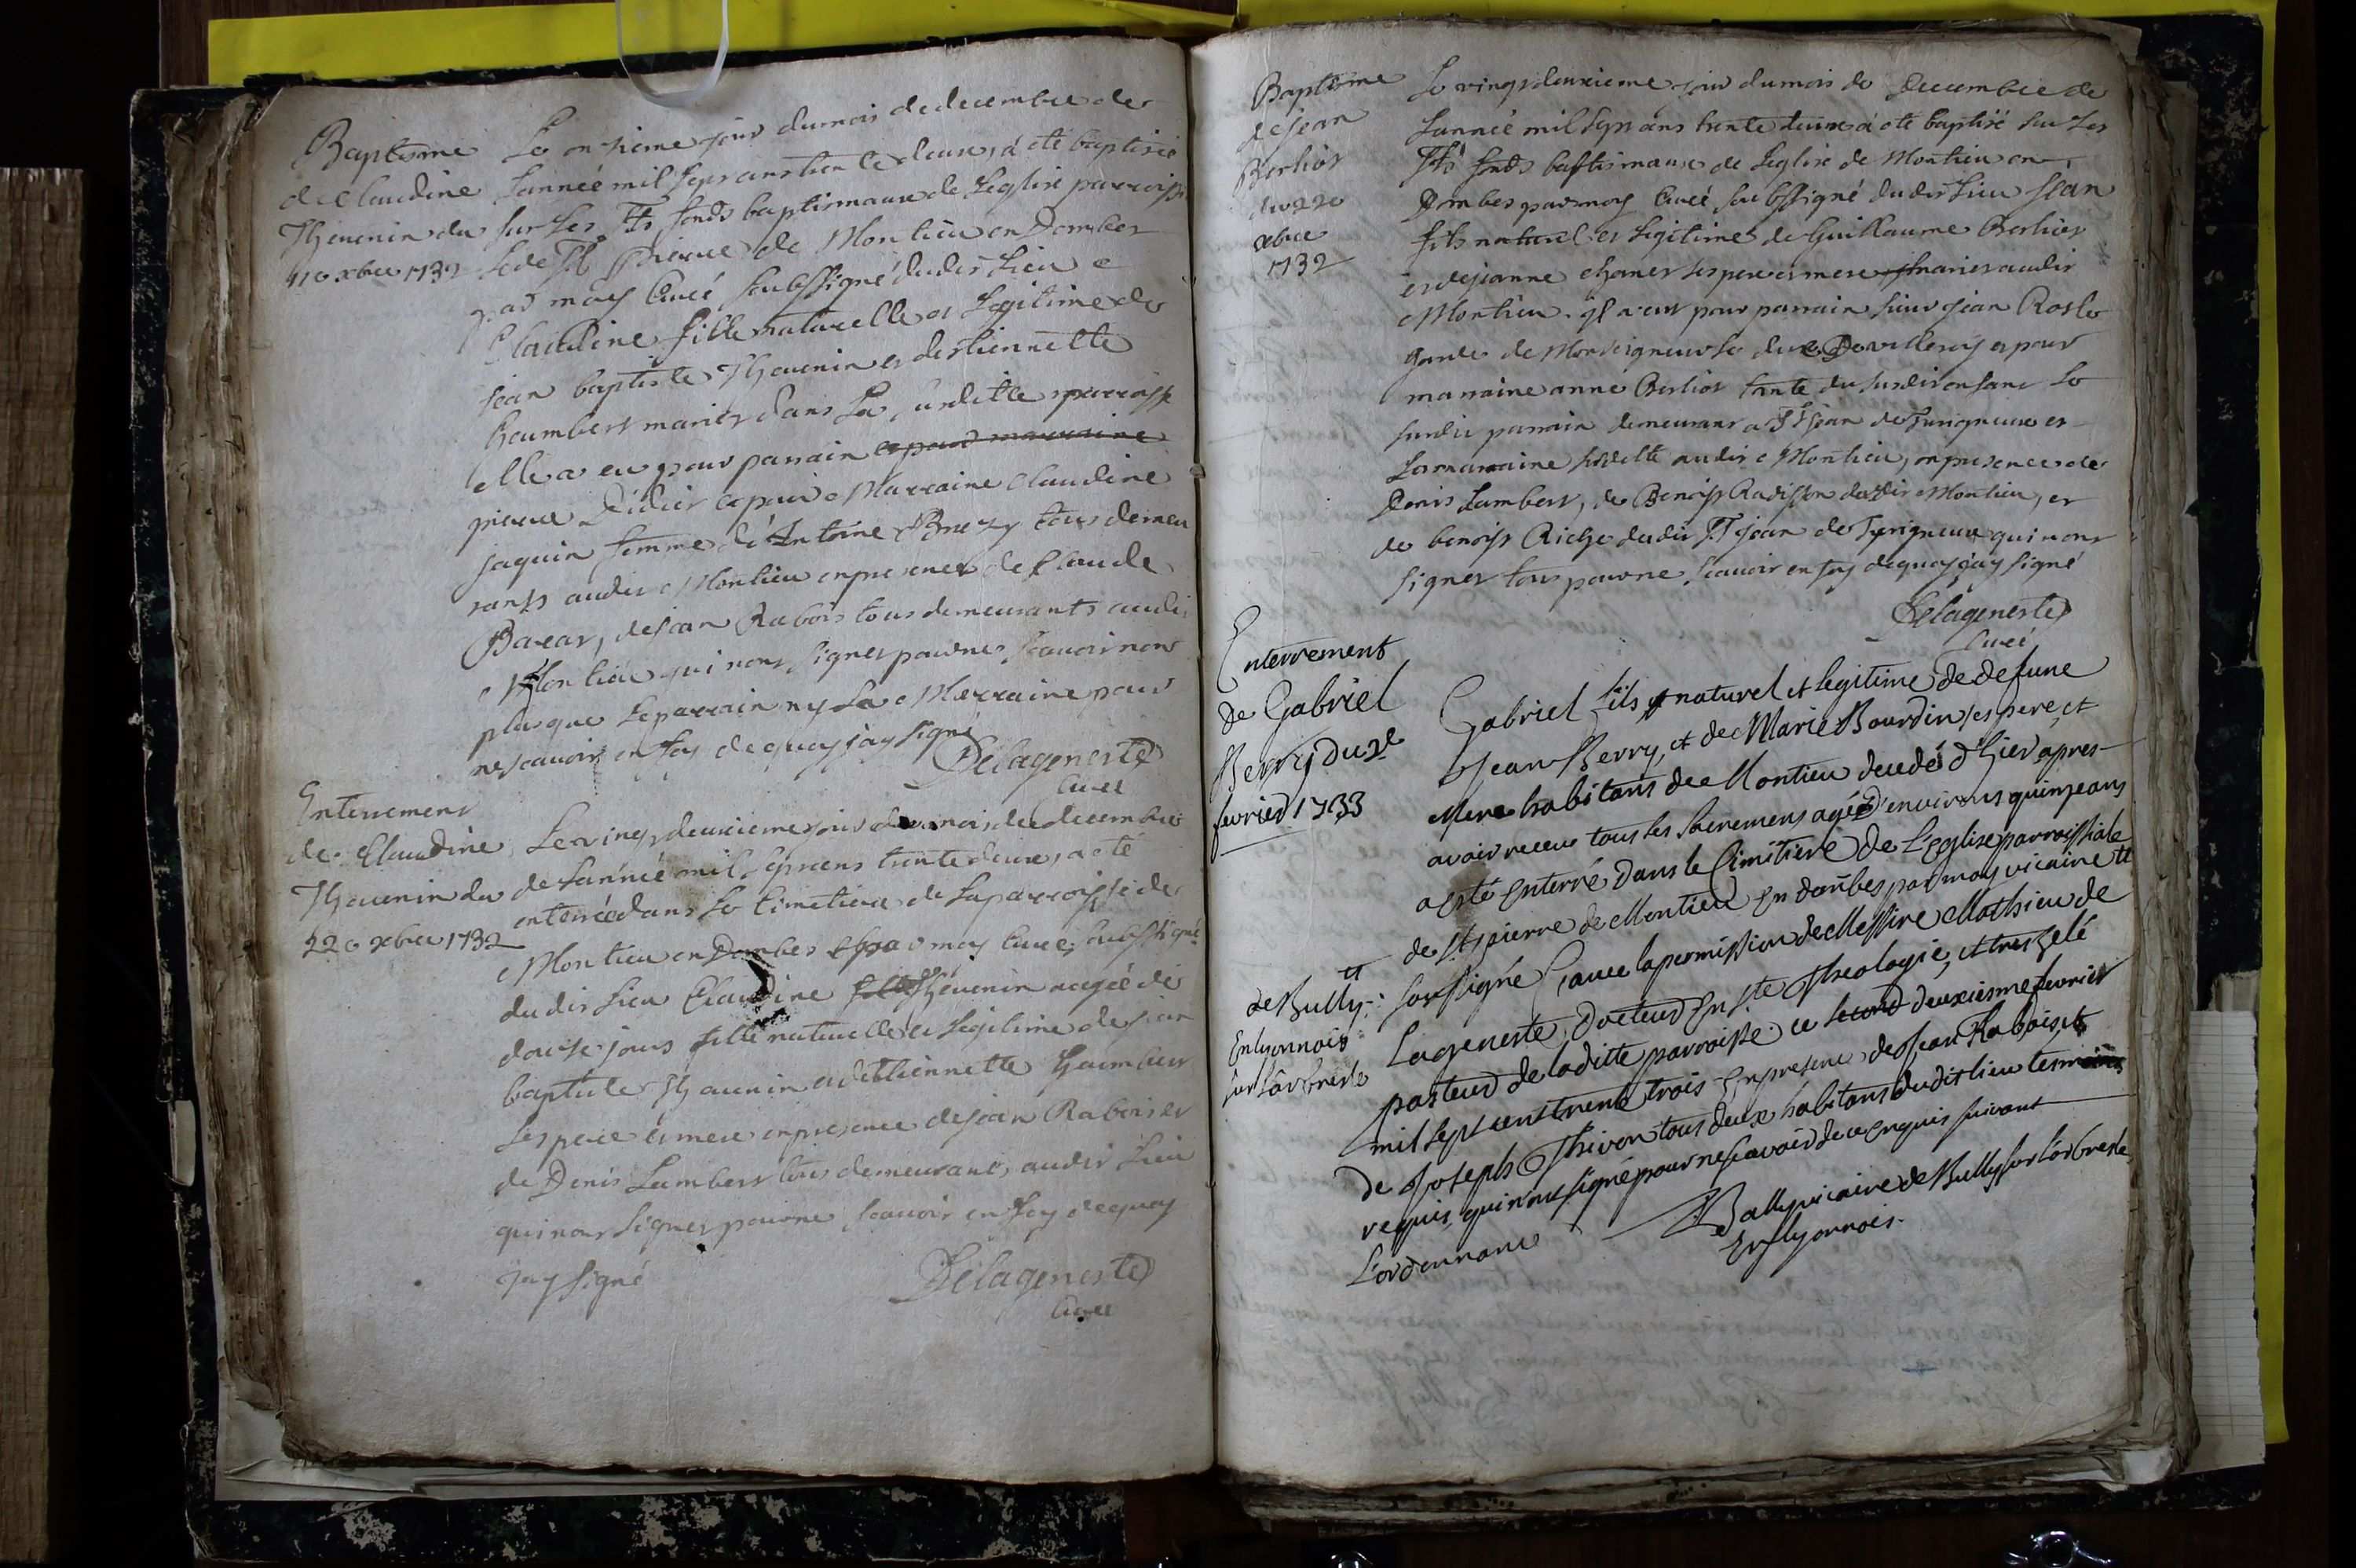 Baptême
de Claudine
Thevenin du
11e xbre 1732
Le onsieme jour du mois de decembre de
lannée mil sept cens trente deux, a été baptisée
sur les Sts fonds baptismaux de leglise parroissi
ale de St Pierre de Montieu en Dombes
par moy Curé soubssigné dudit lieu
Claudine fille naturelle et legitime de
Jean baptiste Thevenin et destiennette
heumbert mariés dans la susditte parroisse
elle a eu pour parrain et pour marraine
pierre Didier et pour Marraine Claudine
jaquin femme de Antoine Brezy tous demeu
rants audit Montieu en presence de Claude
Barar, de jean Rabois tous demeurants audit
Montieu qui nont signer pour ne scavoir non
plus que le parrain ny la Marraine pour
ne scavoir en foy de quoy jay signé
Delageneste
Curé
Enterrement
de Claudine
Thevenin du
22e xbre 1732
Le vingt deuxieme jour du mois de decembre
de lannée mil sept cens trente deux, a eté
enterrée dans le Cimetiere de la parroisse de
Montieu en Dombes par moy Curé soubssigné
dudit lieu Claudine fille Thevenin agée de
douse jours fille naturelle et legitime de jean
baptiste Thevenin et detiennette heumbert
ses pere et mere en presence de jean Rabois et
de Denis Lambert tous demeurant audit lieu
qui nont signer pour ne scavoir en foy de quoy
jay signé
Delageneste
Curé
Baptême
de Jean
Berliot
du 22e
xbre
1732
Le vingt deuxieme jour du mois de Decembre de
lannée mil sept cens trente deux a eté baptisé sur les
Sts fonds baptismaux de leglise de Montieu en
Dombes par moy Curé soubssigné dudit lieu Jean
fils naturel et legitime de Guillaume Berliot
et de jeanne chanet ses pere et mere mariés audit
Montieu. il a eut pour parrain sieur jean Roste
garde de Monseigneur le duc De villeroy et pour
marraine anne Berliot tante du susdit enfant le
susdit parrain demeurant a St jean de Turigneux et
la marraine susditte audit Montieu, en presence de
Denis Lambert, de Benoist Radisson dudit Montieu, et
de benoist Riche dudit St jean de Turigneux qui nont
signer tous pour ne scavoir en foy de quoy jay signé
Delageneste
Curé
Enterrement
de Gabriel
Berry du 2e
fevrier 1733
Gabriel fils naturel et legitime de defunt
Jean Berry, et de Marie Bourdin ses pere, et
Mere habitans de Montieu decedé d'hier apres
avoir receu tous les Sacremens agé d'environs quinze ans
a esté enterré dans le Cimitiere de L'Eglise parroissiale
de St pierre de Montieu en dombes par moy vicaire tt
sousigné avec la permission de Messire Mathieu de
Lageneste, Docteur en Ste Theologie, et tres zelé
pasteur de laditte parroisse ce second deuxiesme fevrier
mil sept cent trente trois en presence de Jean Rabois, et
de Joseph Thivon tous deux habitans dudit lieu temoins
requis, qui n'ont signé pour ne scavoir de ce enquis suivant
L'ordonnance
Bally vicaire de Bully sur l'arbresle
En Lyonnois.
tt
de Bully
En lyonnois
sur L'arbresle